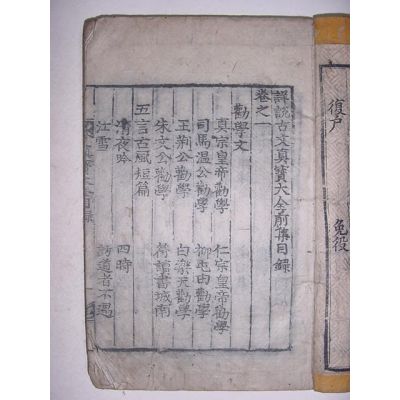 復戶 免役
詳說古文真寶大全前集目錄
卷之一
勸學文
真宗皇帝勸學 仁宗皇帝勸學
司馬溫公勸學 柳屯田勸學
王荊公勸學 白樂天勸學
朱文公勸學 符讀書城南
五言古風短篇
清夜吟 四時
江雪 訪道者不遇